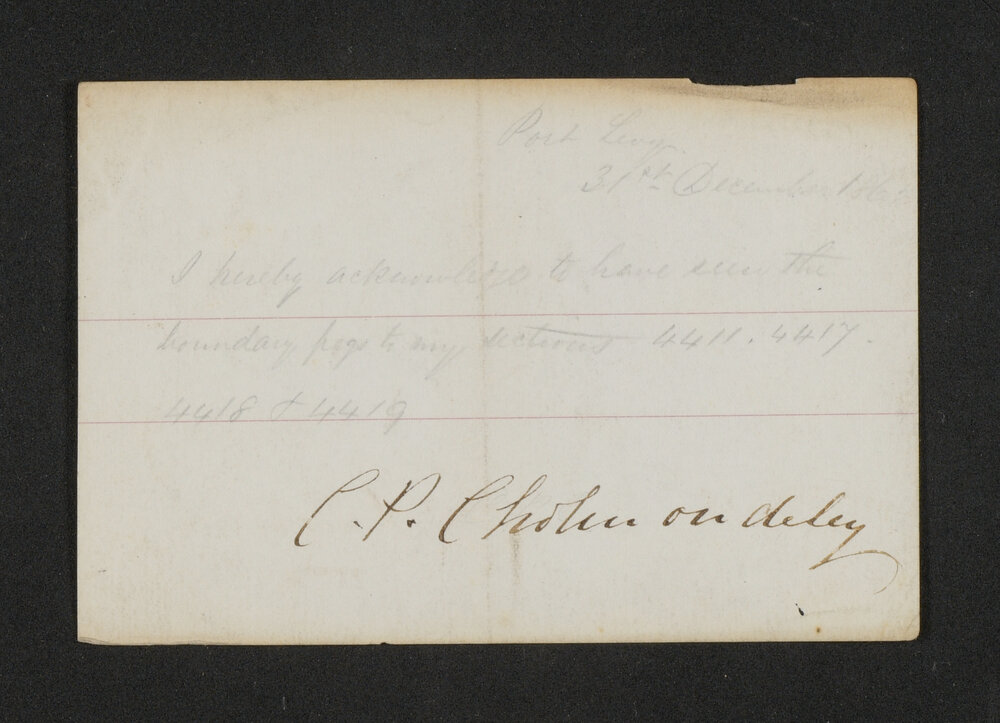 Port Levy
31st December 186
I hereby acknowledge to have seen the
boundary pegs to my sections 4411. 4417.
4418 & 4419
C. P. Cholmondeley